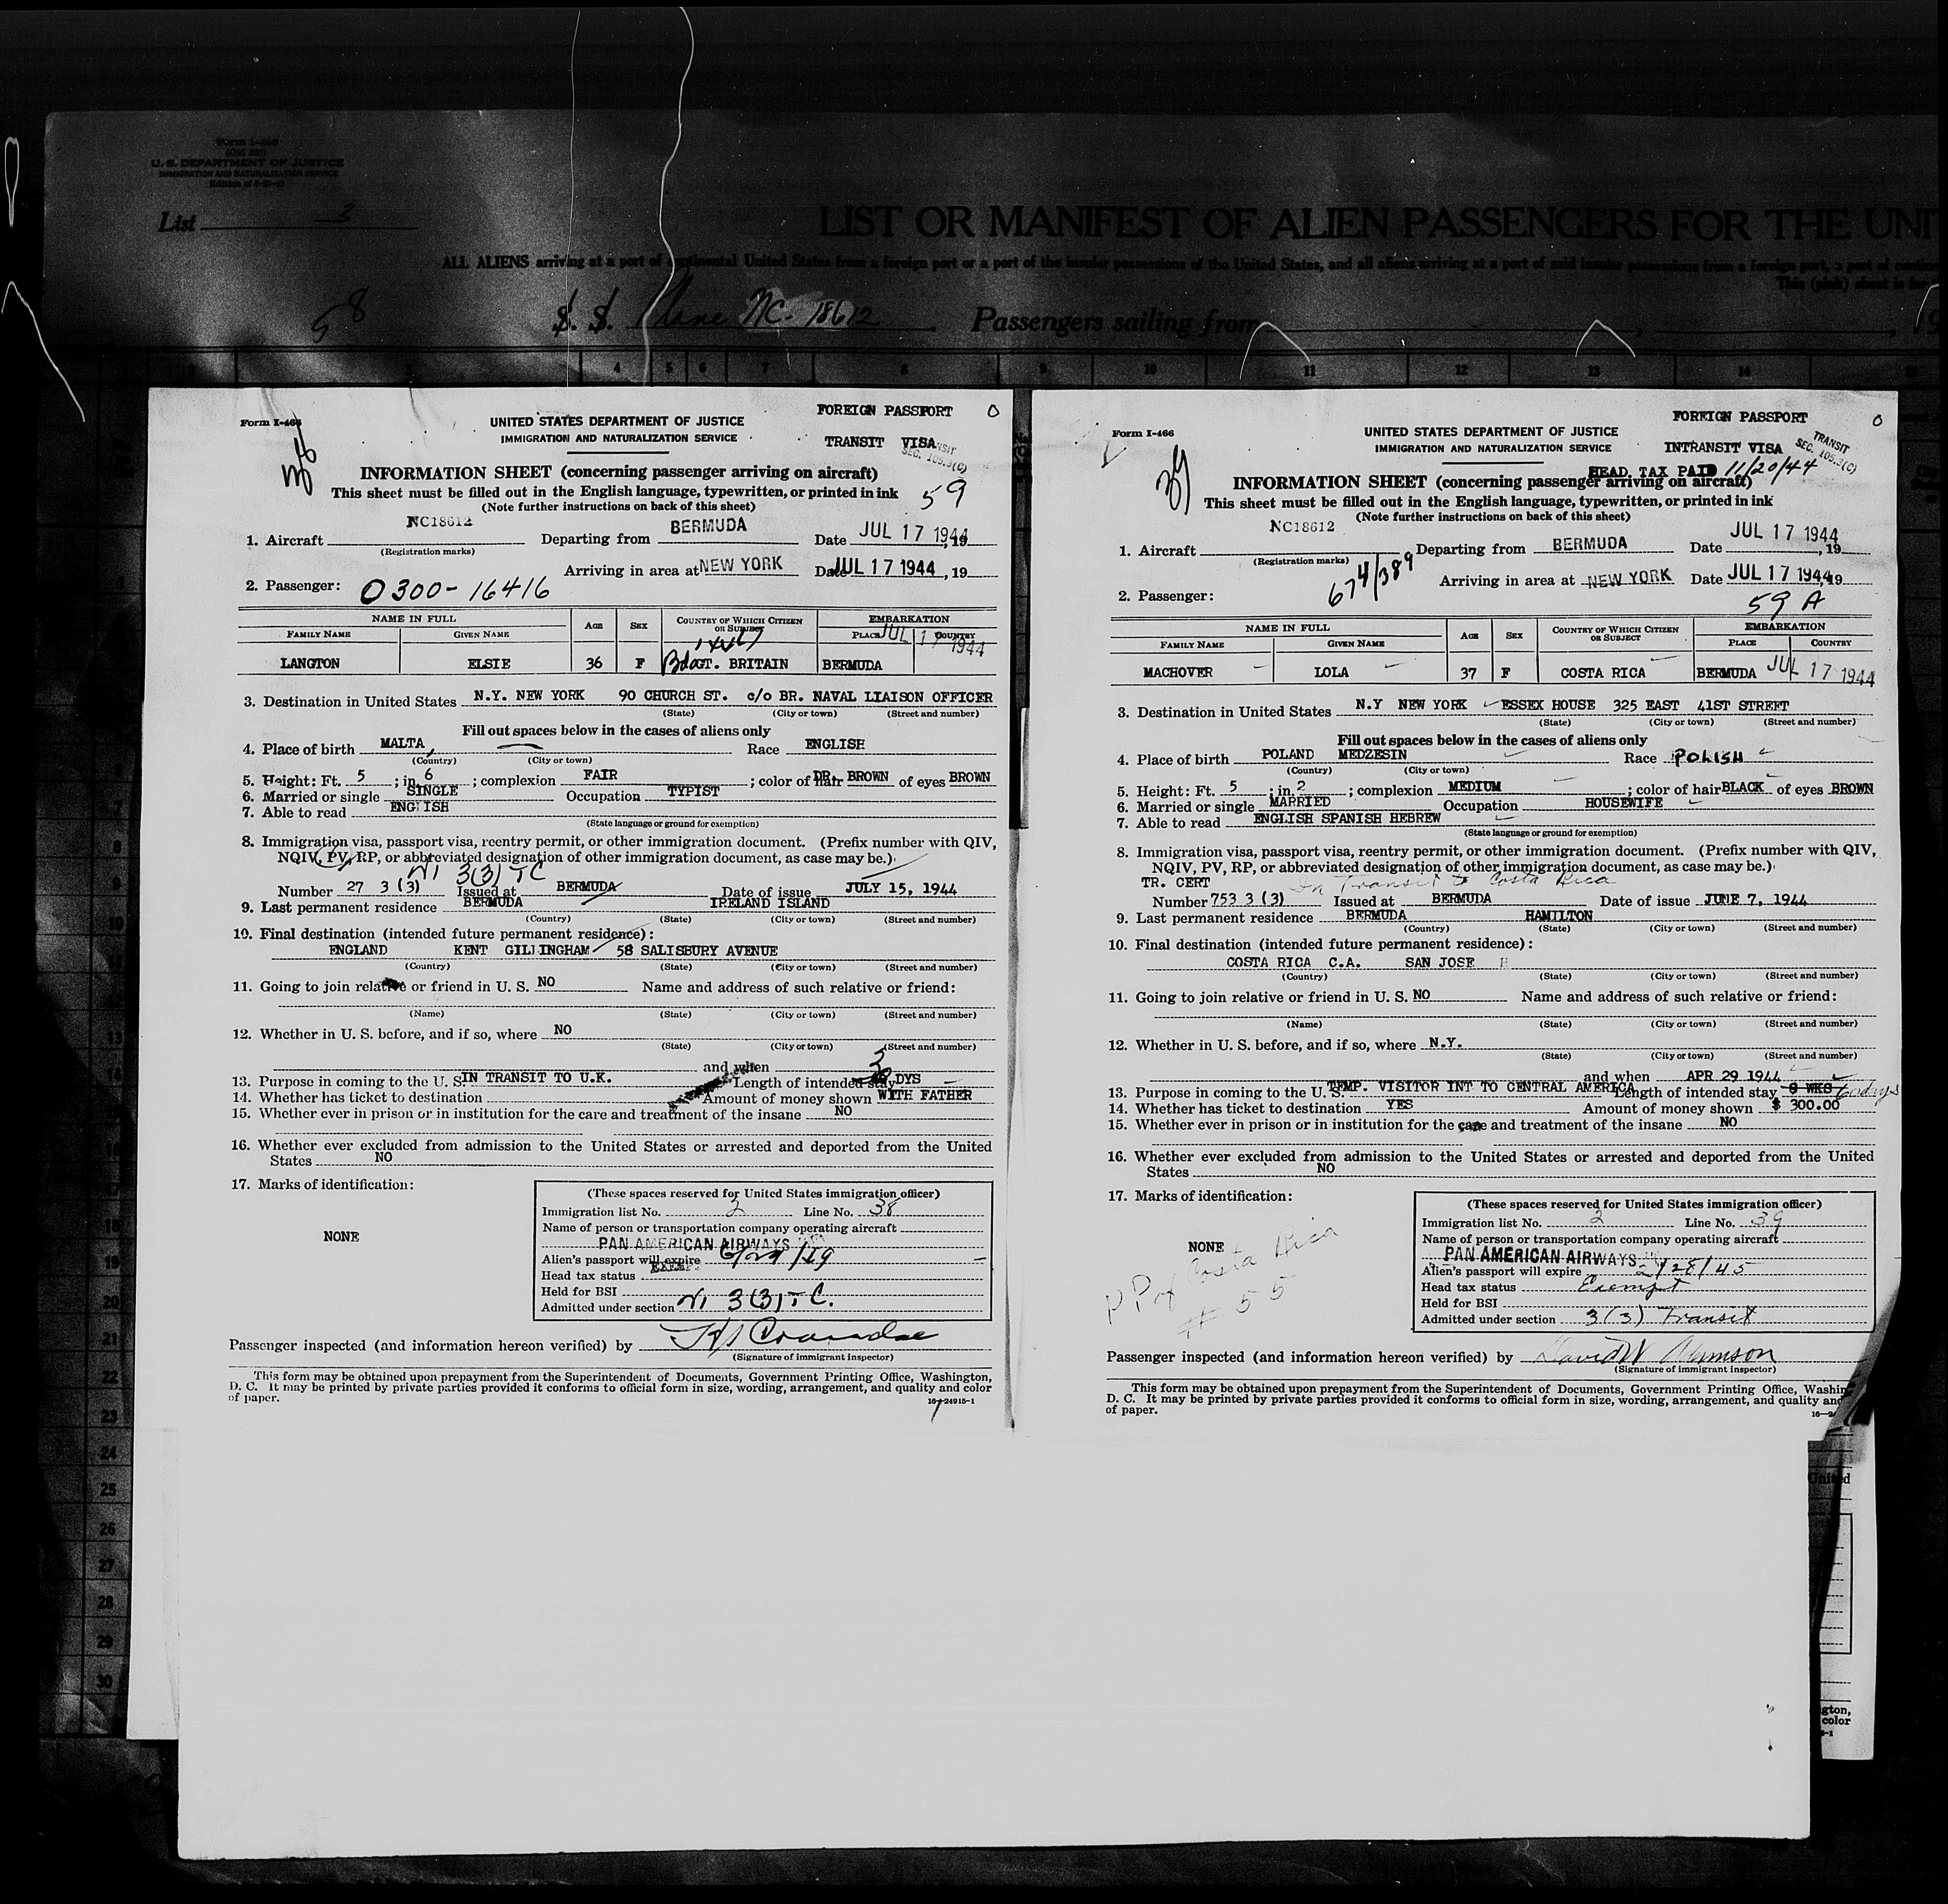 Form I-466
(Old 500)
U. S. DEPARTMENT OF JUSTICE
IMMIGRATION AND NATURALIZATION SERVICE
List 3
LIST OR MANIFEST OF ALIEN PASSENGERS FOR THE UNI
ALL ALIENS arriving at a port of continental United States from a foreign port or a port of the insular possessions of the United States, and all aliens arriving at a port of said insular possessions from a foreign port, a port of contin
This (pink) sheet is for
58
S. S. Plane NC-18612 Passengers sailing from , , 19
2 4 5 6 7 8 9 10 11 12 13 14
Form I-466
UNITED STATES DEPARTMENT OF JUSTICE
IMMIGRATION AND NATURALIZATION SERVICE
FOREIGN PASSPORT O
TRANSIT VISA
TRANSIT
SEC. 105.3(C)
INFORMATION SHEET (concerning passenger arriving on aircraft)
This sheet must be filled out in the English language, typewritten, or printed in ink 59
(Note further instructions on back of this sheet)
1. Aircraft NC18612 Departing from BERMUDA Date JUL 17 1944, 19
(Registration marks)
Arriving in area at NEW YORK Date JUL 17 1944, 19
2. Passenger: 0300-16416
NAME IN FULL AGE SEX COUNTRY OF WHICH CITIZEN OR SUBJECT EMBARKATION
FAMILY NAME GIVEN NAME PLACE COUNTRY
JUL 17 1944
LANGTON ELSIE 36 F GT. BRITAIN BERMUDA
3. Destination in United States N.Y. NEW YORK 90 CHURCH ST. c/o BR. NAVAL LIAISON OFFICER
(State) (City or town) (Street and number)
Fill out spaces below in the cases of aliens only
4. Place of birth MALTA Race ENGLISH
(Country) (City or town)
5. Height: Ft. 5 ; in. 6 ; complexion FAIR ; color of hair DR. BROWN of eyes BROWN
6. Married or single SINGLE Occupation TYPIST
7. Able to read ENGLISH
(State language or ground for exemption)
8. Immigration visa, passport visa, reentry permit, or other immigration document. (Prefix number with QIV,
NQIV, PV, RP, or abbreviated designation of other immigration document, as case may be.)
3(3) TC
Number 27 3 (3) Issued at BERMUDA Date of issue JULY 15, 1944
9. Last permanent residence BERMUDA IRELAND ISLAND
(Country) (State) (City or town) (Street and number)
10. Final destination (intended future permanent residence):
ENGLAND KENT GILLINGHAM 58 SALISBURY AVENUE
(Country) (State) (City or town) (Street and number)
11. Going to join relative or friend in U. S. NO Name and address of such relative or friend:
(Name) (State) (City or town) (Street and number)
12. Whether in U. S. before, and if so, where NO
(State) (City or town) (Street and number)
and when
13. Purpose in coming to the U. S. IN TRANSIT TO U.K. Length of intended stay 3 DYS
14. Whether has ticket to destination Amount of money shown WITH FATHER
15. Whether ever in prison or in institution for the care and treatment of the insane NO
16. Whether ever excluded from admission to the United States or arrested and deported from the United
States NO
17. Marks of identification:
NONE
(These spaces reserved for United States immigration officer)
Immigration list No. 2 Line No. 38
Name of person or transportation company operating aircraft
PAN AMERICAN AIRWAYS
Alien's passport will expire
Head tax status EXEMPT
Held for BSI
Admitted under section 3(3) TC.
Passenger inspected (and information hereon verified) by
(Signature of immigrant inspector)
This form may be obtained upon prepayment from the Superintendent of Documents, Government Printing Office, Washington,
D. C. It may be printed by private parties provided it conforms to official form in size, wording, arrangement, and quality and color
of paper.
16-24915-1
Form I-466
UNITED STATES DEPARTMENT OF JUSTICE
IMMIGRATION AND NATURALIZATION SERVICE
FOREIGN PASSPORT O
INTRANSIT VISA
TRANSIT
SEC. 105.3(C)
HEAD TAX PAID 11/20/44
INFORMATION SHEET (concerning passenger arriving on aircraft)
This sheet must be filled out in the English language, typewritten, or printed in ink
(Note further instructions on back of this sheet)
1. Aircraft NC18612 Departing from BERMUDA Date JUL 17 1944, 19
(Registration marks)
Arriving in area at NEW YORK Date JUL 17 1944, 19
2. Passenger: 674/389 59 A
NAME IN FULL AGE SEX COUNTRY OF WHICH CITIZEN OR SUBJECT EMBARKATION
FAMILY NAME GIVEN NAME PLACE COUNTRY
MACHOVER LOLA 37 F COSTA RICA BERMUDA JUL 17 1944
3. Destination in United States N.Y NEW YORK ESSEX HOUSE 325 EAST 41ST STREET
(State) (City or town) (Street and number)
Fill out spaces below in the cases of aliens only
4. Place of birth POLAND MEDZESIN Race POLISH
(Country) (City or town)
5. Height: Ft. 5 ; in. 2 ; complexion MEDIUM ; color of hair BLACK of eyes BROWN
6. Married or single MARRIED Occupation HOUSEWIFE
7. Able to read ENGLISH SPANISH HEBREW
(State language or ground for exemption)
8. Immigration visa, passport visa, reentry permit, or other immigration document. (Prefix number with QIV,
NQIV, PV, RP, or abbreviated designation of other immigration document, as case may be.)
TR. CERT In Transit to Costa Rica
Number 753 3 (3) Issued at BERMUDA Date of issue JUNE 7, 1944
9. Last permanent residence BERMUDA HAMILTON
(Country) (State) (City or town) (Street and number)
10. Final destination (intended future permanent residence):
COSTA RICA C.A. SAN JOSE
(Country) (State) (City or town) (Street and number)
11. Going to join relative or friend in U. S. NO Name and address of such relative or friend:
(Name) (State) (City or town) (Street and number)
12. Whether in U. S. before, and if so, where N.Y.
(State) (City or town) (Street and number)
and when APR 29 1944
13. Purpose in coming to the U. S. TEMP. VISITOR INT TO CENTRAL AMERICA Length of intended stay 8 WKS 60 days
14. Whether has ticket to destination YES Amount of money shown $ 300.00
15. Whether ever in prison or in institution for the care and treatment of the insane NO
16. Whether ever excluded from admission to the United States or arrested and deported from the United
States NO
17. Marks of identification:
NONE
PPt Costa Rica
# 55
(These spaces reserved for United States immigration officer)
Immigration list No. 2 Line No. 39
Name of person or transportation company operating aircraft
PAN AMERICAN AIRWAYS
Alien's passport will expire 2/28/45
Head tax status Exempt
Held for BSI
Admitted under section 3(3) Transit
Passenger inspected (and information hereon verified) by David W
(Signature of immigrant inspector)
This form may be obtained upon prepayment from the Superintendent of Documents, Government Printing Office, Washin
D. C. It may be printed by private parties provided it conforms to official form in size, wording, arrangement, and quality and
of paper.
16-24
24
25
26
27
28
29
30
United
gton,
color
-1